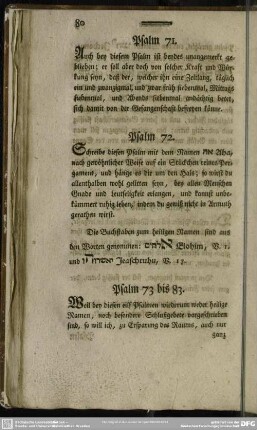 80
Psalm 71.
Auch bey diesem Psalm ist beydes unangemerkt ge-
blieben; er soll aber doch von solcher Kraft und Wür-
kung seyn, daß der, welcher ihn eine Zeitlang, täglich
ein und zwanzigmal, und zwar früh siebenmal, Mittags
siebenmal, und Abends siebenmal andächtig betet,
sich damit von der Gefangenschaft befreyen könne.
Psalm 72.
Schreibe diesen Psalm mit dem Namen Aha,
nach gewöhnlicher Weise auf ein Stückchen reines Per-
gament, und hänge es dir um den Hals; so wirst du
allenthalben wohl gelitten seyn, bey allen Menschen
Gnade und Leutseligkeit erlangen, und kannst unbe-
kümmert ruhig leben, indem du gewiß nicht in Armuth
gerathen wirst.
Die Buchstaben zum heiligen Namen sind aus
den Worten genommen: אלהים Elohim, V. 1.
und Jeascheruhu, V. 17.
Psalm 73 bis 83.
Weil bey diesen eilf Psalmen wiederum weder heilige
Namen, noch besondere Schlußgebete vorgeschrieben
sind, so will ich, zu Ersparung des Raums, auch nur
ganz
DFG